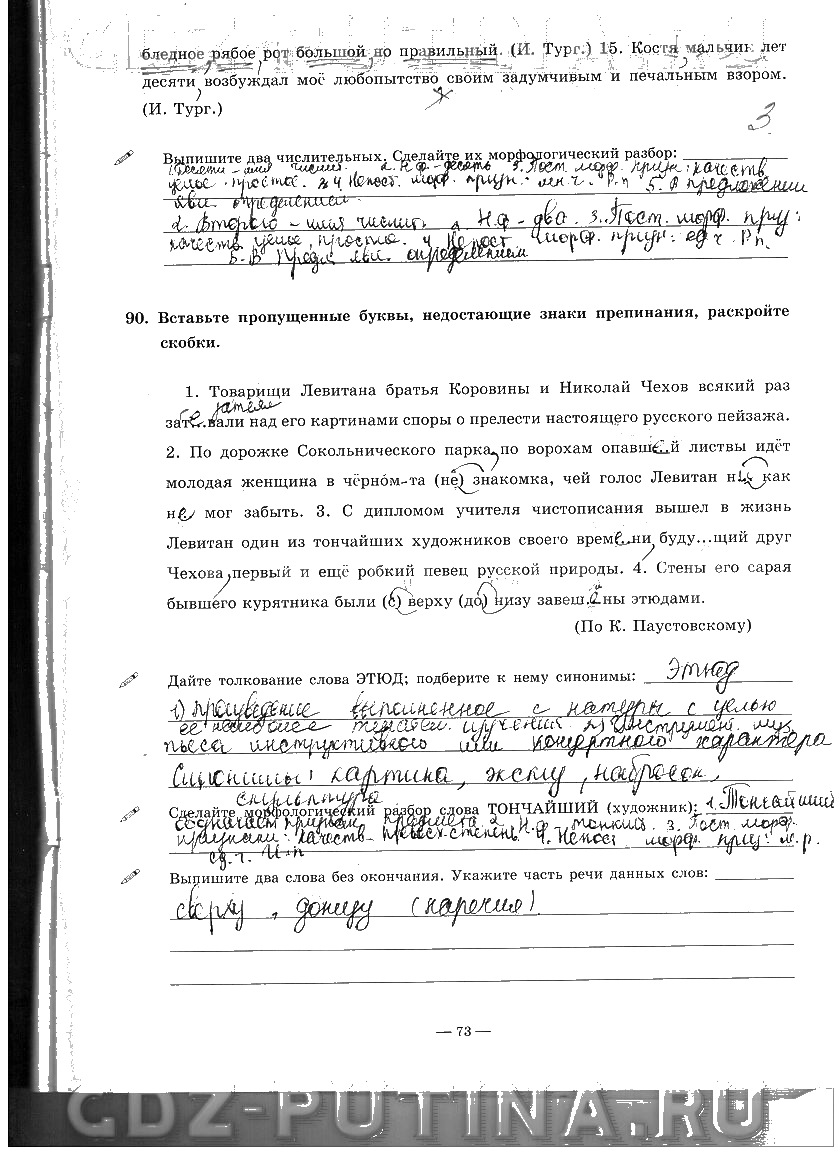 бледное рябое рот большой но правильный. (И. Тург.) 15. Костя мальчик лет
десяти, возбуждал моё любопытство своим задумчивым и печальным взором.
(И. Тург.)
3
Выпишите два числительных. Сделайте их морфологический разбор:
Десяти – имя числит. 2. Н.ф – десять 3. Пост. морф. призн: качеств.
целое простое. 4 Непост. морф. призн: мн.ч. Р.п 5. В предложении
явл. определением.
2. Второго – имя числит. 2. Н.ф – два. 3. Пост. морф. приз:
качеств целое, простое. 4 Непост. морф. призн: ед ч. Р п.
5. В предл явл. определением
90. Вставьте пропущенные буквы, недостающие знаки препинания, раскройте
скобки.
1. Товарищи Левитана братья Коровины и Николай Чехов всякий раз
зате..вали над его картинами споры о прелести настоящего русского пейзажа.
2. По дорожке Сокольнического парка, по ворохам опавше..й листвы идёт
молодая женщина в чёрном-та (не) знакомка, чей голос Левитан ни как
не мог забыть. 3. С дипломом учителя чистописания вышел в жизнь
Левитан один из тончайших художников своего време..ни, буду...щий друг
Чехова, первый и ещё робкий певец русской природы. 4. Стены его сарая
бывшего курятника были (с) верху (до) низу завеш.а ны этюдами.
(По К. Паустовскому)
Дайте толкование слова ЭТЮД; подберите к нему синонимы: Этюд
1) произведение выполненное с натуры с целью
ее изучения 2) инструмент. муз
пьеса инструктивного или концертного характера
Синонимы: картина, эскиз, набросок,
скульптура
Сделайте морфологический разбор слова ТОНЧАЙШИЙ (художник): 1. Тончайший
обозначает признак предмета 2. Н.ф тонкий. 3. Пост морф.
признаки: качеств превосх степень 4. Непост морф. приз: м.р.
ед.ч. И.п
Выпишите два слова без окончания. Укажите часть речи данных слов:
сверху, донизу (наречия)
— 73 —
GDZ-PUTINA.RU